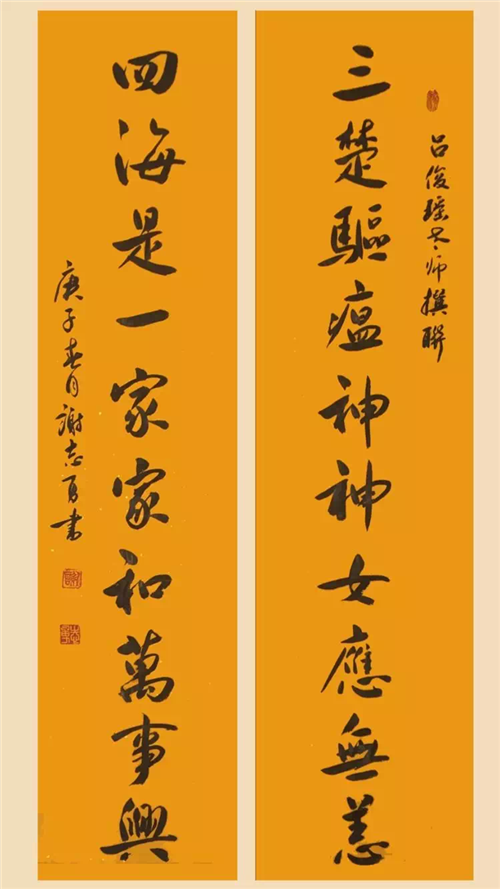 呂俊老師撰聯
三楚驅瘟神神女應無恙
四海是一家家和萬事興
庚子春月謝志書